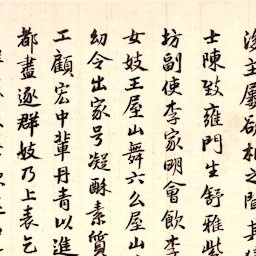 後主屢欲相之階其猥
士陳致雍門生舒雅紫
坊副使李家明會飲李
女妓王屋山舞六幺屋山
幼令出家号凝酥素質
工顧宏中輩丹青以進
都盡逐群妓乃上表乞